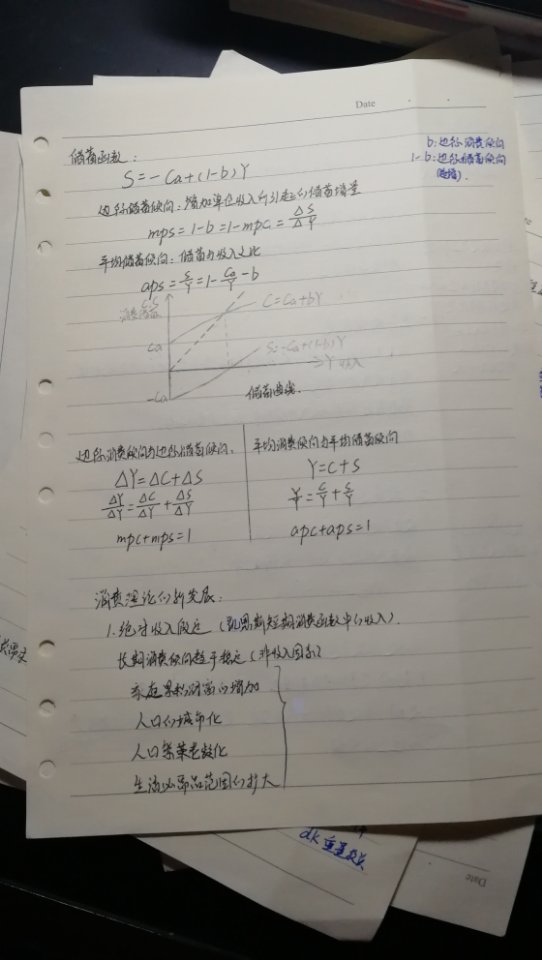 Date
储蓄函数:
S=-Ca+(1-b)Y
b:边际消费倾向
1-b:边际储蓄倾向
边际储蓄倾向:增加单位收入所引起的储蓄增量
mps=1-b=1-mpc=ΔS/ΔY
平均储蓄倾向:储蓄与收入之比
aps=S/Y=1-Ca/Y-b
C.S
消费储蓄
C=Ca+bY
Ca
S=-Ca+(1-b)Y
Y 收入
-Ca
储蓄曲线
边际消费倾向与边际储蓄倾向.
ΔY=ΔC+ΔS
ΔY/ΔY=ΔC/ΔY+ΔS/ΔY
mpc+mps=1
平均消费倾向与平均储蓄倾向
Y=C+S
Y/Y=C/Y+S/Y
apc+aps=1
消费理论的新发展:
1.绝对收入假定(凯恩斯短期消费函数中的收入).
长期消费倾向趋于稳定(非收入因素)
家庭累积财富的增加
人口的城市化
人口年策老龄化
生活必需品范围的扩大
dk
Date